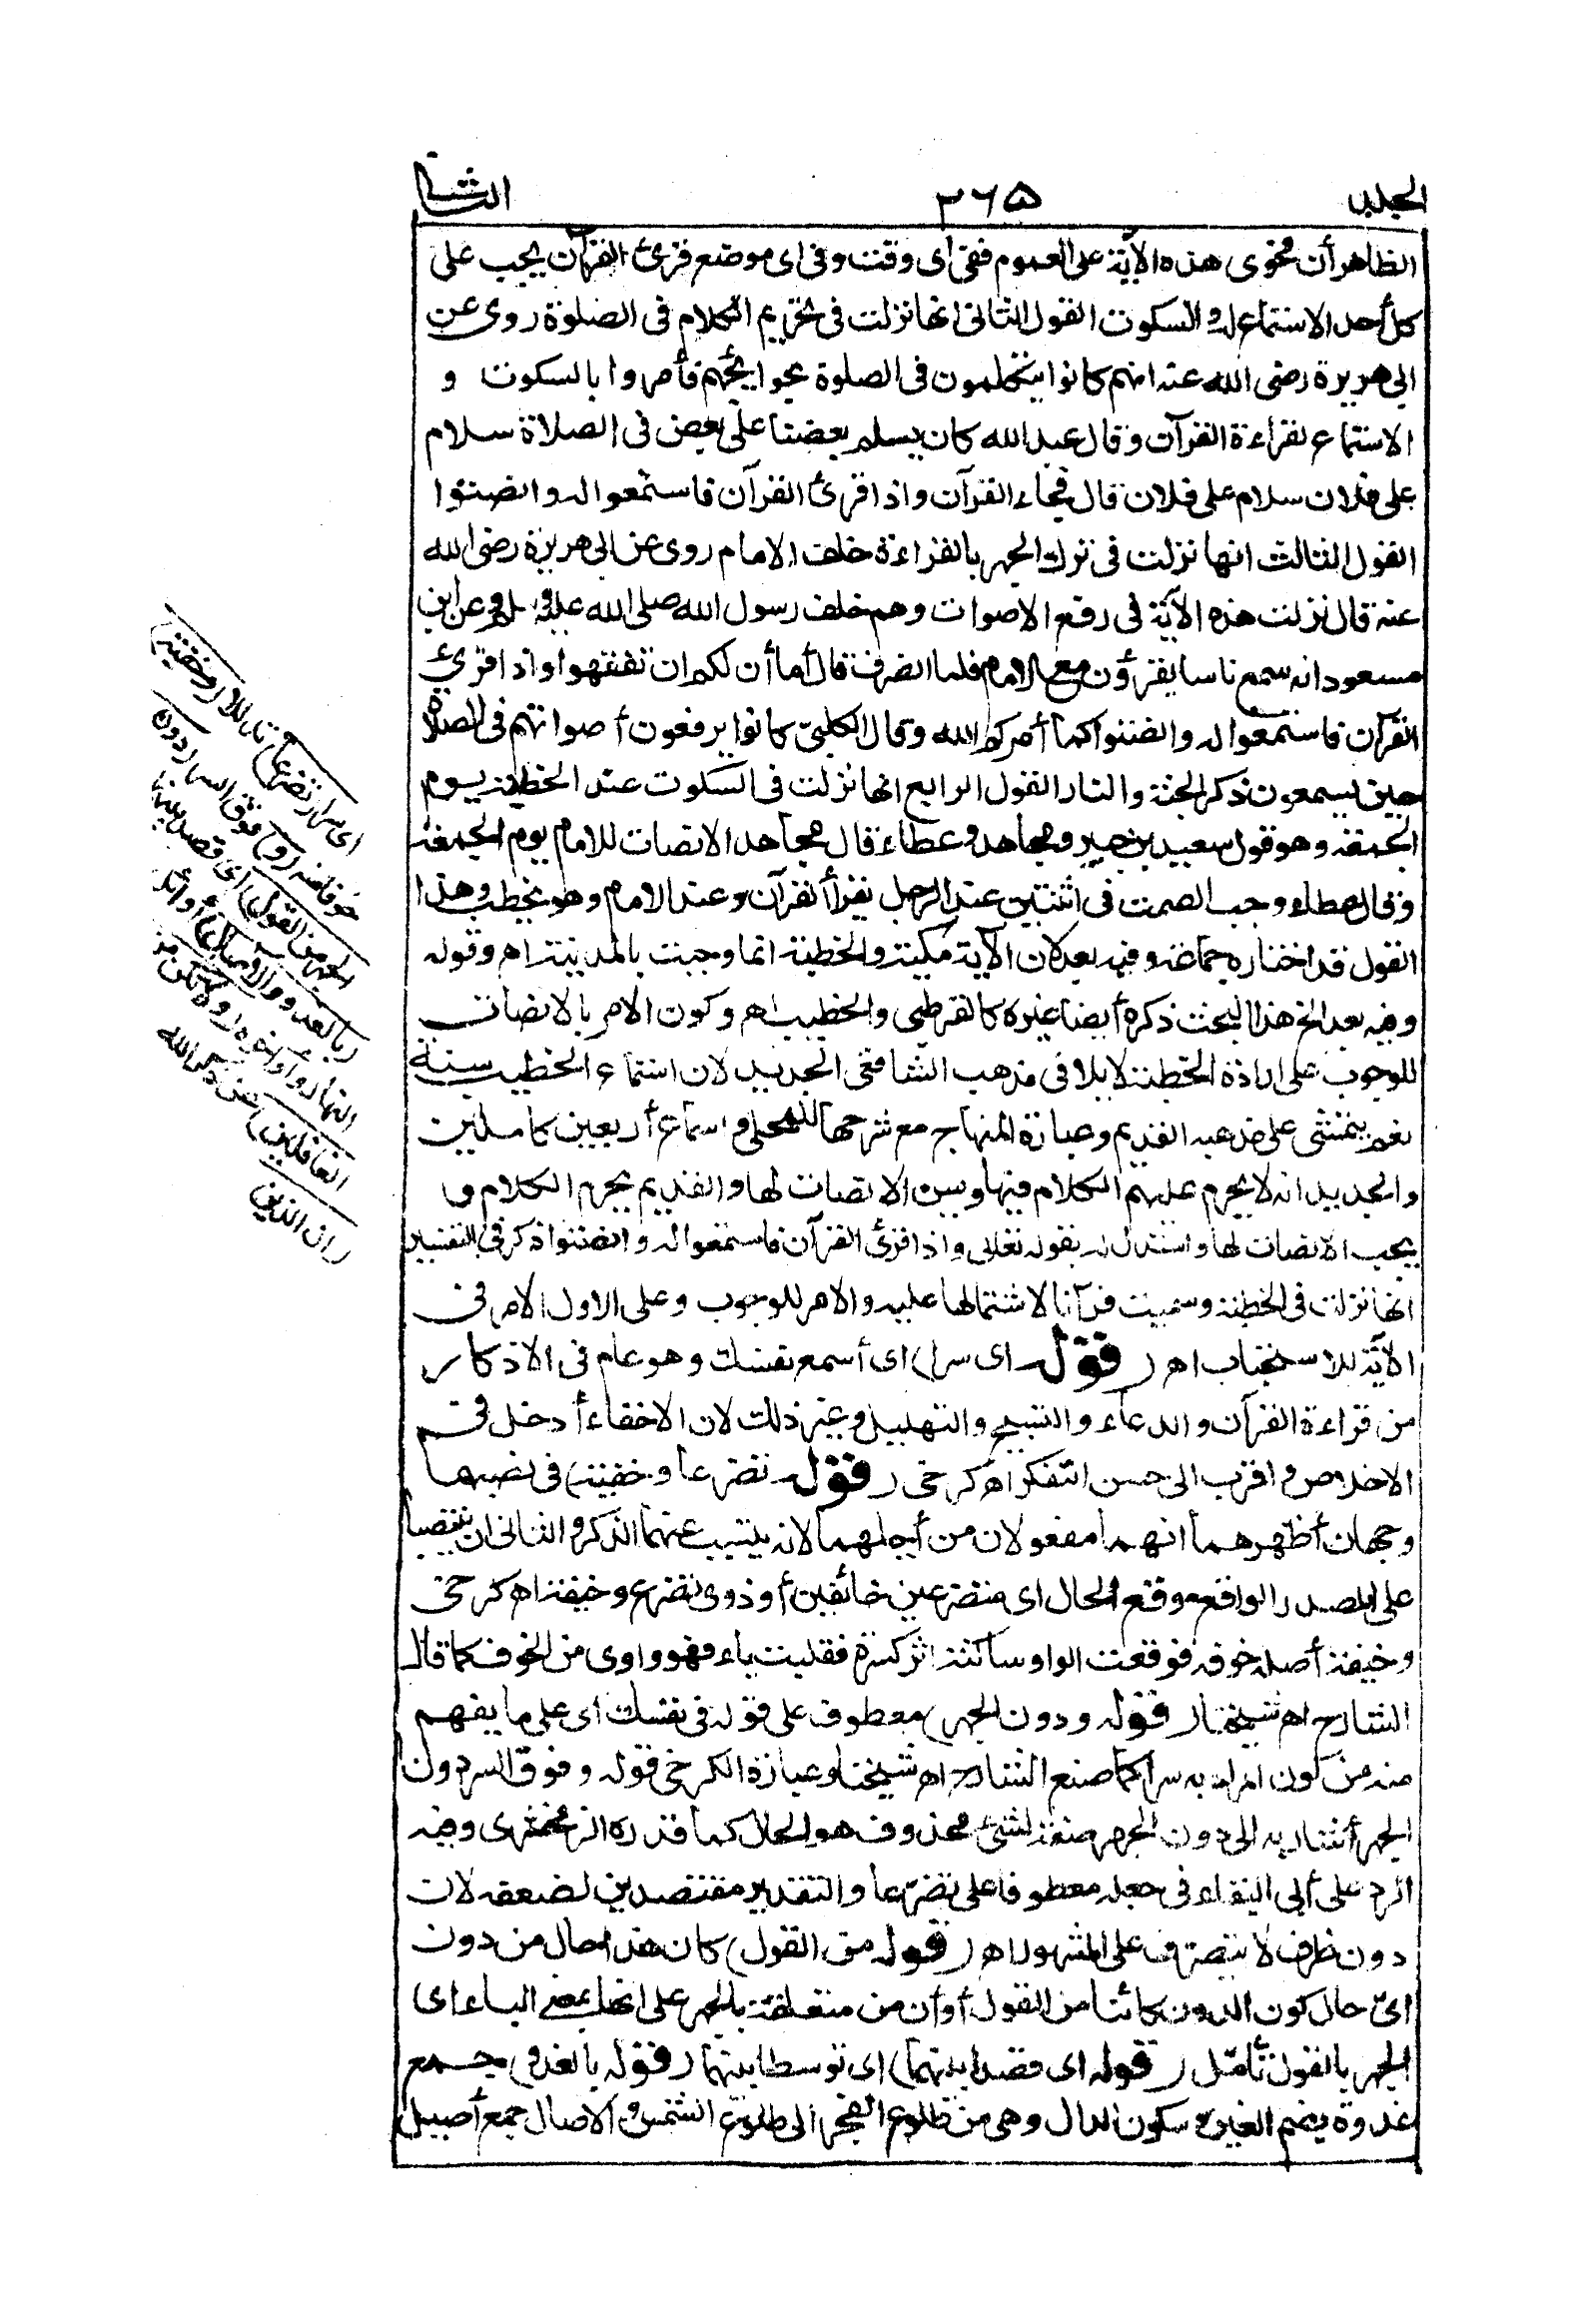 الجلد
٣٦٥
الثانى
الظاهر أن فحوى هذه الآية على العموم ففى أى وقت وفى اى موضع قرئ القرآن يجب على
كل أحد الاستماع له والسكوت القول الثانى انها نزلت فى تحريم الكلام فى الصلوة روى عن
ابى هريرة رضى الله عنه انهم كانوا يتكلمون فى الصلوة بحوائجهم فأمروا بالسكوت و
الاستماع لقراءة القرآن وقال عبد الله كان يسلم بعضنا على بعض فى الصلاة سلام
على فلان سلام على فلان قال فجاء القرآن واذا قرئ القرآن فاستمعوا له وانصتوا
القول الثالث انها نزلت فى ترك الجهر بالقراءة خلف الامام روى عن ابى هريرة رضى الله
عنه قال نزلت هذه الآية فى رفع الاصوات وهم خلف رسول الله صلى الله عليه وسلم وعن ابن
مسعود انه سمع ناسا يقرؤن مع الامام فلما انصرف قال أما أن لكم ان تفقهوا واذا قرئ
القرآن فاستمعوا له وانصتوا كما أمركم الله وقال الكلبى كانوا يرفعون أصواتهم فى الصلاة
حين يسمعون ذكر الجنة والنار القول الرابع انها نزلت فى السكوت عند الخطبة يوم
الجمعة وهو قول سعيد بن جبير ومجاهد وعطاء قال مجاهد الانصات للامام يوم الجمعة
وقال عطاء وجب الصمت فى اثنتين عند الرجل يقرأ القرآن وعند الامام وهو يخطب وهذا
القول قد اختاره جماعة وفيه بعد لان الآية مكية والخطبة انما وجبت بالمدينة اه وقوله
وفيه بعد الخ هذا البحث ذكره أيضا غيره كالقرطبى والخطيب اه وكون الامر بالانصات
للوجوب على ارادة الخطبة لا يلاقى مذهب الشافعى الجديد لان استماع الخطيب سنة
نعم يتمشى على مذهبه القديم وعبارة المنهاج مع شرحها للمحلى واسماع أربعين كاملين
والجديد انه لا يحرم عليهم الكلام فيها ويسن الانصات لها والقديم يحرم الكلام و
يجب الانصات لها واستدل له بقوله تعالى واذا قرئ القرآن فاستمعوا له وانصتوا ذكر فى التفسير
انها نزلت فى الخطبة وسميت قرآنا لاشتمالها عليه والامر للوجوب وعلى الاول الامر فى
الآية للاستحباب اه (قوله اى سرا) اى أسمع نفسك وهو عام فى الاذكار
من قراءة القرآن والدعاء والتسبيح والتهليل وغير ذلك لان الاخفاء أدخل فى
الاخلاص واقرب الى حسن التفكر اه كرخى (قوله تضرعا وخفية) فى نصبهما
وجهان أظهرهما انهما مفعولان من أجلهما لانه يتسبب عنهما الذكر والثانى ان ينتصبا
على المصدر الواقع موقع الحال اى متضرعين خائفين أو ذوى تضرع وخيفة اه كرخى
وخيفة أصله خوفه فوقعت الواو ساكنة اثر كسرة فقلبت ياء فهو واوى من الخوف كما قال
الشارح اه شيخنا (قوله ودون الجهر) معطوف على قوله فى نفسك اى على ما يفهم
منه من كون المراد به سرا كما صنع الشارح اه شيخنا وعبارة الكرخى قوله وفوق السر دون
الجهر أشار به الى دون الجهر صفة لشئ محذوف هو الحال كما قدره الزمخشرى وفيه
الرد على أبى البقاء فى جعله معطوفا على تضرعا والتقدير مقتصدين لضعفه لان
دون ظرف لا يتصرف على المشهور اه (قوله من القول) كان هذا حال من دون
اى حال كون الدون كائنا من القول أو أن من متعلقة بالجهر على انها بمعنى الباء اى
الجهر بالقول تأمل (قوله اى قصدا بينهما) اى توسطا بينهما (قوله بالغدو) جمع
غدوة بضم الغين وسكون الدال وهى من طلوع الفجر الى طلوع الشمس والاصال جمع أصيل
اى سرا (تضرعا) تذللا (وخفية)
خوفا منه (و) فوق السر (دون
الجهر من القول) اى قصدا بينهما
(بالغدو والآصال) أوائل
النهار وأواخره (ولا تكن من
الغافلين) عن ذكر الله
(ان الذين